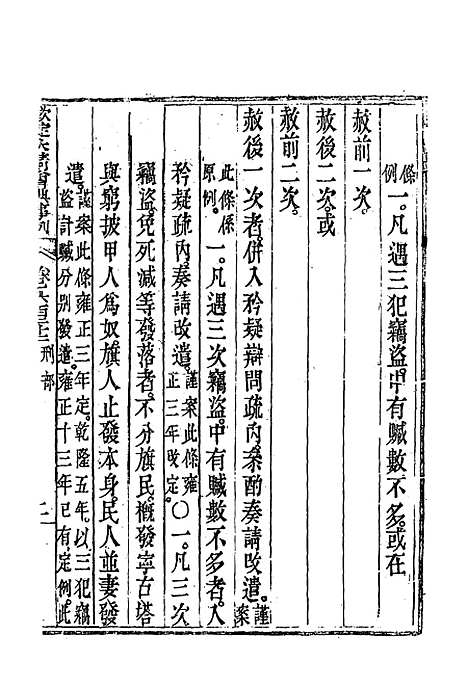 條例一。凡遇三犯竊盜。中有贓數不多。或在
赦前一次。
赦後二次。或
赦前二次。
赦後一次者。併入矜疑辯問疏內。參酌奏請改遣。謹案
此條係原例。一。凡遇三次竊盜。中有贓數不多者。入
矜疑疏內。奏請改遣。謹案此條雍正三年改定。〇一。凡三次
竊盜免死減等發落者。不分旗民。概發寧古塔
與窮披甲人為奴。旗人止發本身。民人並妻發
遣。謹案此條雍正三年定。乾隆五年。以三犯竊盜計贓分別發遣。雍正十三年已有定例。此
欽定大清會典事例 刑部